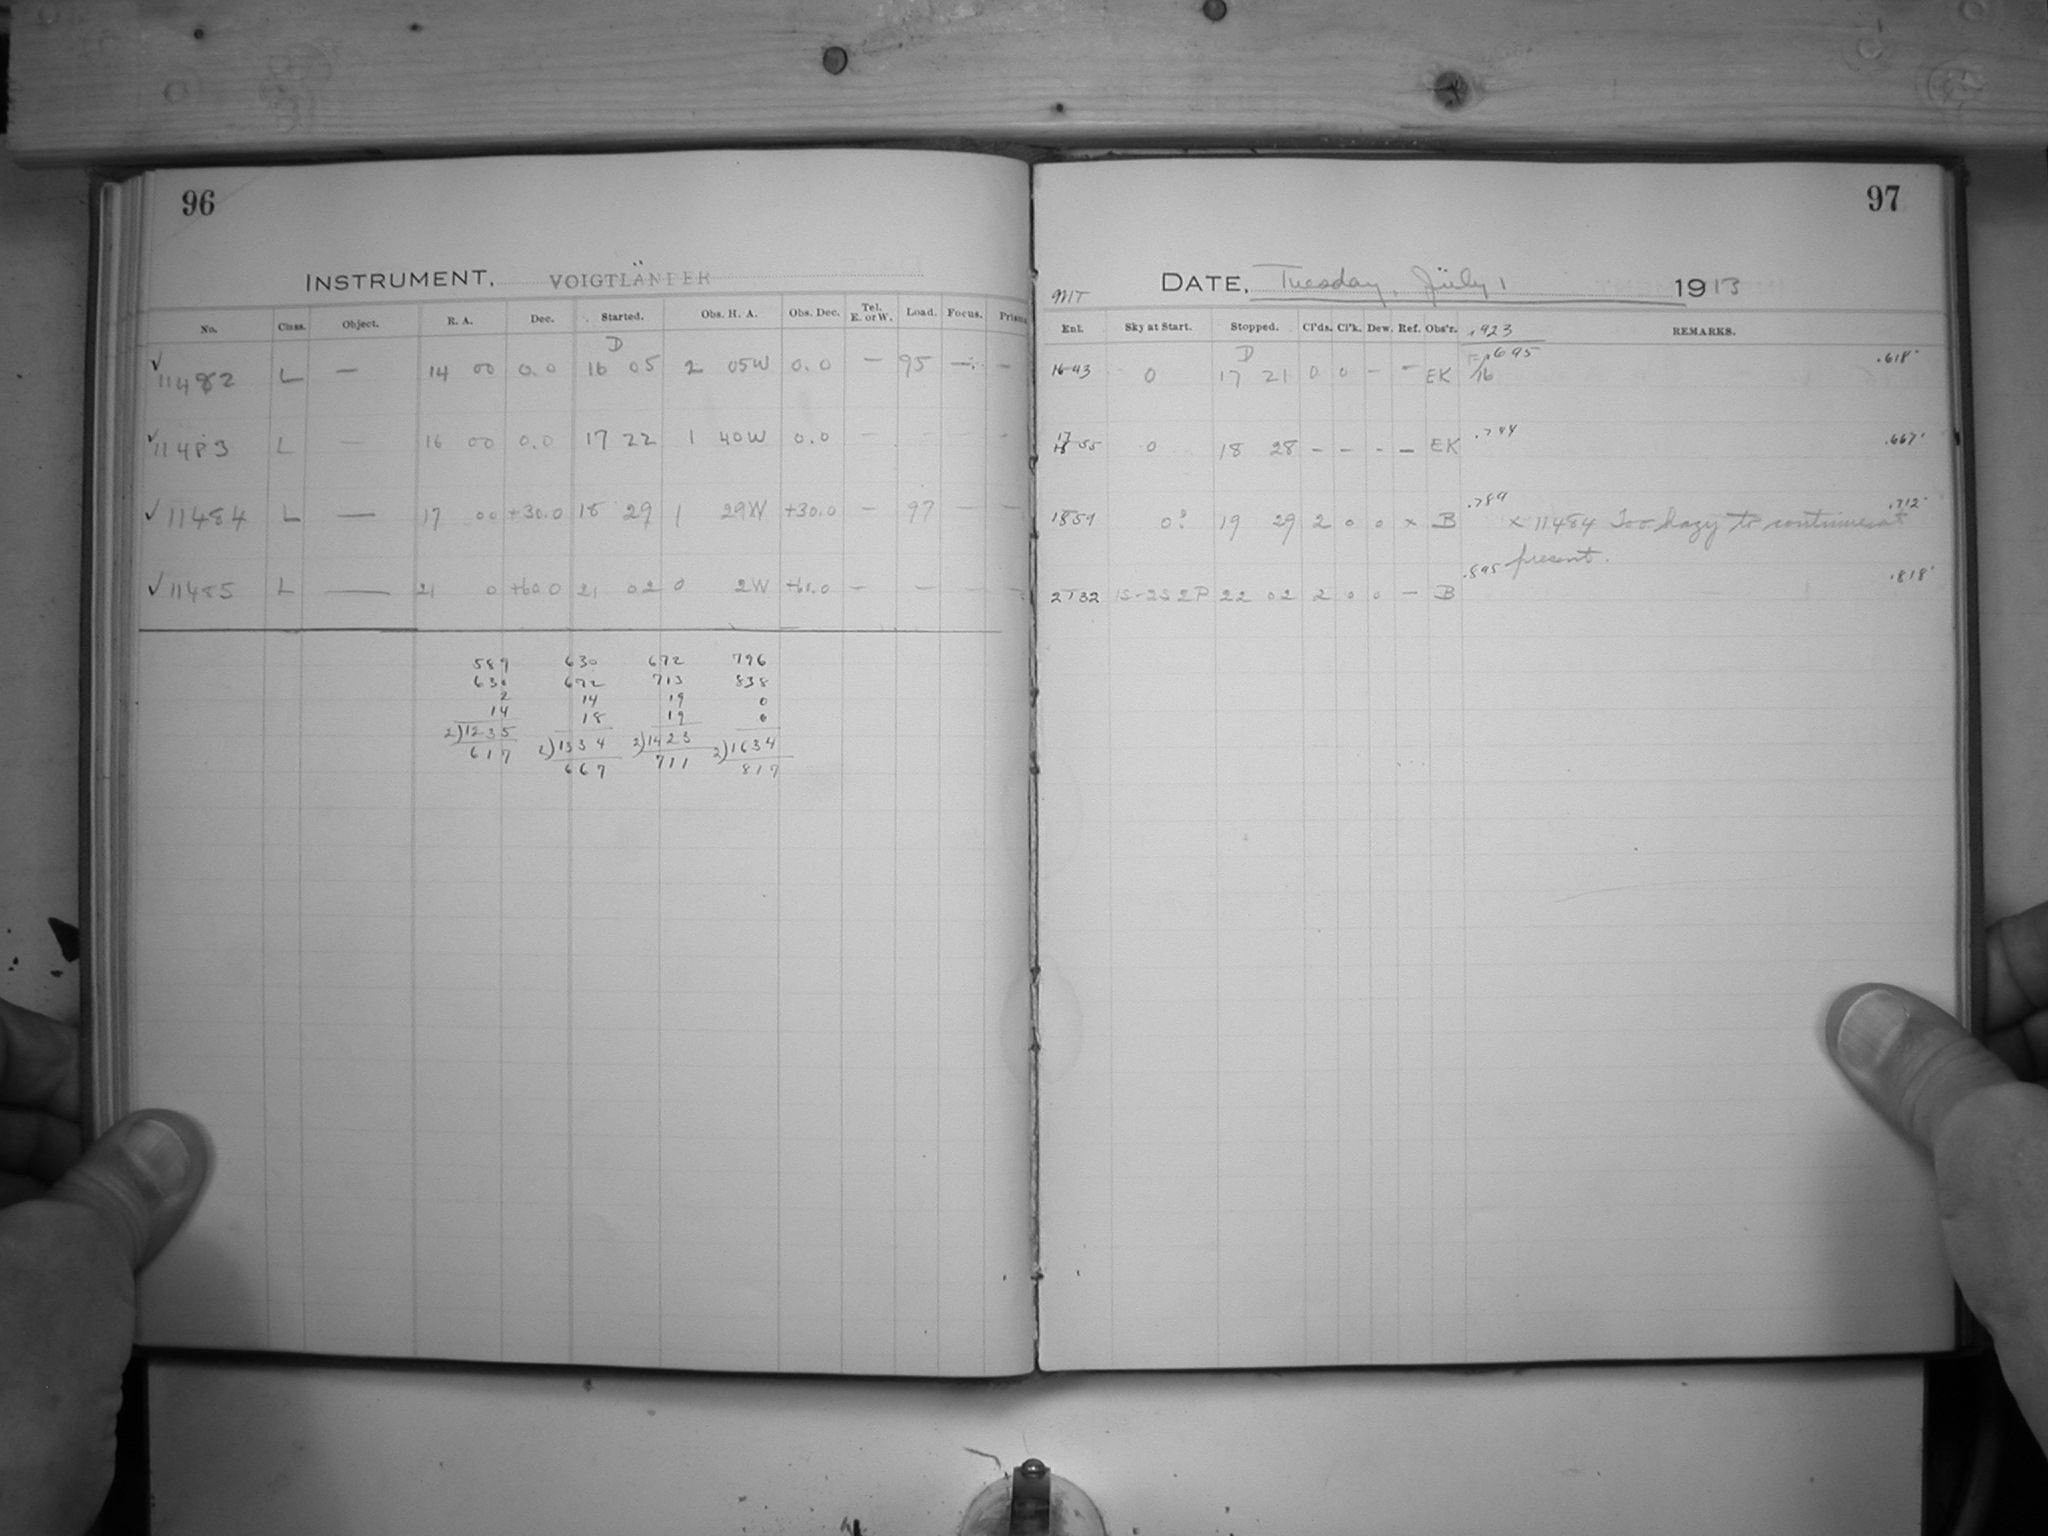 96
INSTRUMENT. VOIGTLÄNDER
No. Class. Object. R. A. Dec. Started. Obs. H. A. Obs. Dec. Tel. E. or W. Load. Focus. Prism
D
✓ 11482 L — 14 00 0.0 16 05 2 05W 0.0 — 95 — —
✓ 11483 L — 16 00 0.0 17 22 1 40W 0.0 — – – -
✓ 11484 L — 17 00 +30.0 18 29 1 29W +30.0 — 97 — —
✓ 11485 L — 21 0 +60.0 21 02 0 2W +60.0 — — — —
589 630 672 796
630 672 713 838
2 14 19 0
14 18 19 0
2)1235 2)1334 2)1423 2)1634
617 667 711 817
97
DATE. Tuesday, July 1 1913
MT
Ent. Sky at Start. Stopped. Cl'ds. Cl'k. Dew. Ref. Obs'r. .1923 REMARKS.
D
16 43 0 17 21 0 0 – – EK F/16 .695 .618
17 55 0 18 28 – – – – EK .744 .667
18 59 0? 19 29 2 0 0 x B .789 x 11484 Too hazy to continue at .712
present.
21 32 1S-2S 2P 22 02 2 0 0 — B .895 .818